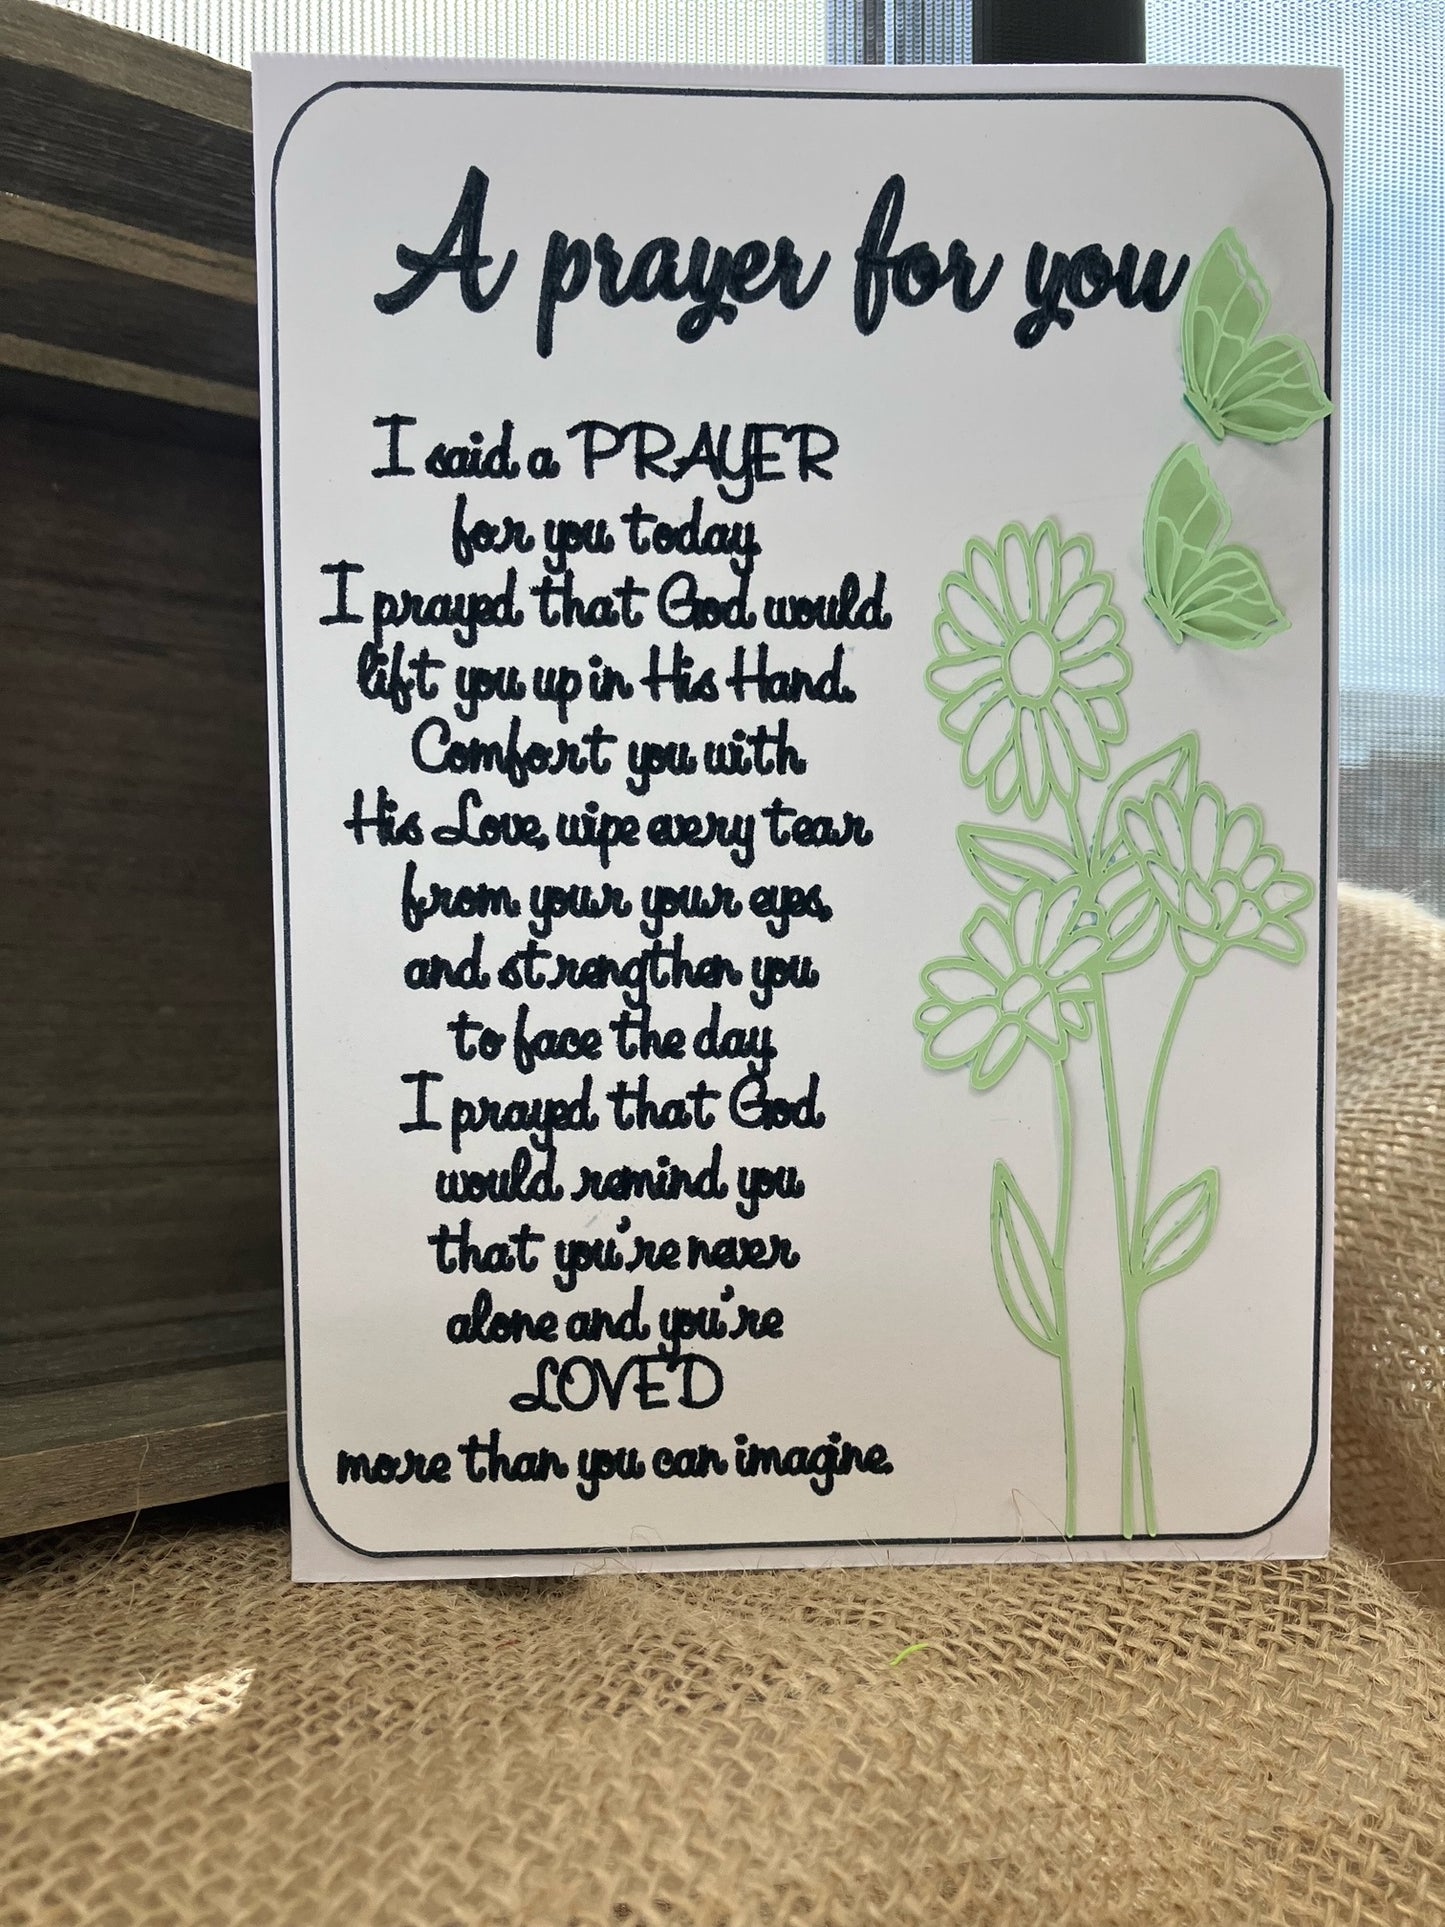 A prayer for you
I said a PRAYER
for you today.
I prayed that God would
lift you up in His Hand.
Comfort you with
His Love, wipe every tear
from your your eyes,
and strengthen you
to face the day.
I prayed that God
would remind you
that you're never
alone and you're
LOVED
more than you can imagine.